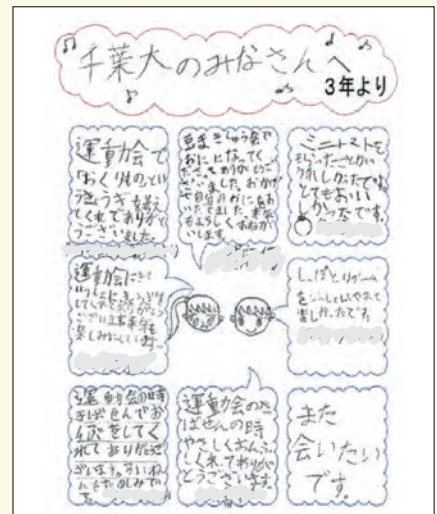 千葉大のみなさんへ
3年より
運動会で
「おくりもの」とい
うきょうぎを考え
てくれてありがと
うございました。
豆まきしゅう会で
おにになってく
ださりありがとうご
ざいました。おかげ
で自分のおにをお
いだせました。来年
もよろしくおねがい
いします。
ミニトマトを
もらったことがう
れしかったです。
とてもおいし
かったです。
運動会にきて
いっしょにきょうぎを
してくれてありがとう
ございます。来年も
楽しみにしています。
しっぽとりゲーム
を
楽しかったです
運動会の時
おうばせんでお
うえんをしてく
れてありがとうご
ざいます。
運動会のき
ばせんの時
やさしくおんぶ
してくれてありが
とうございます。
また
会いたい
です。